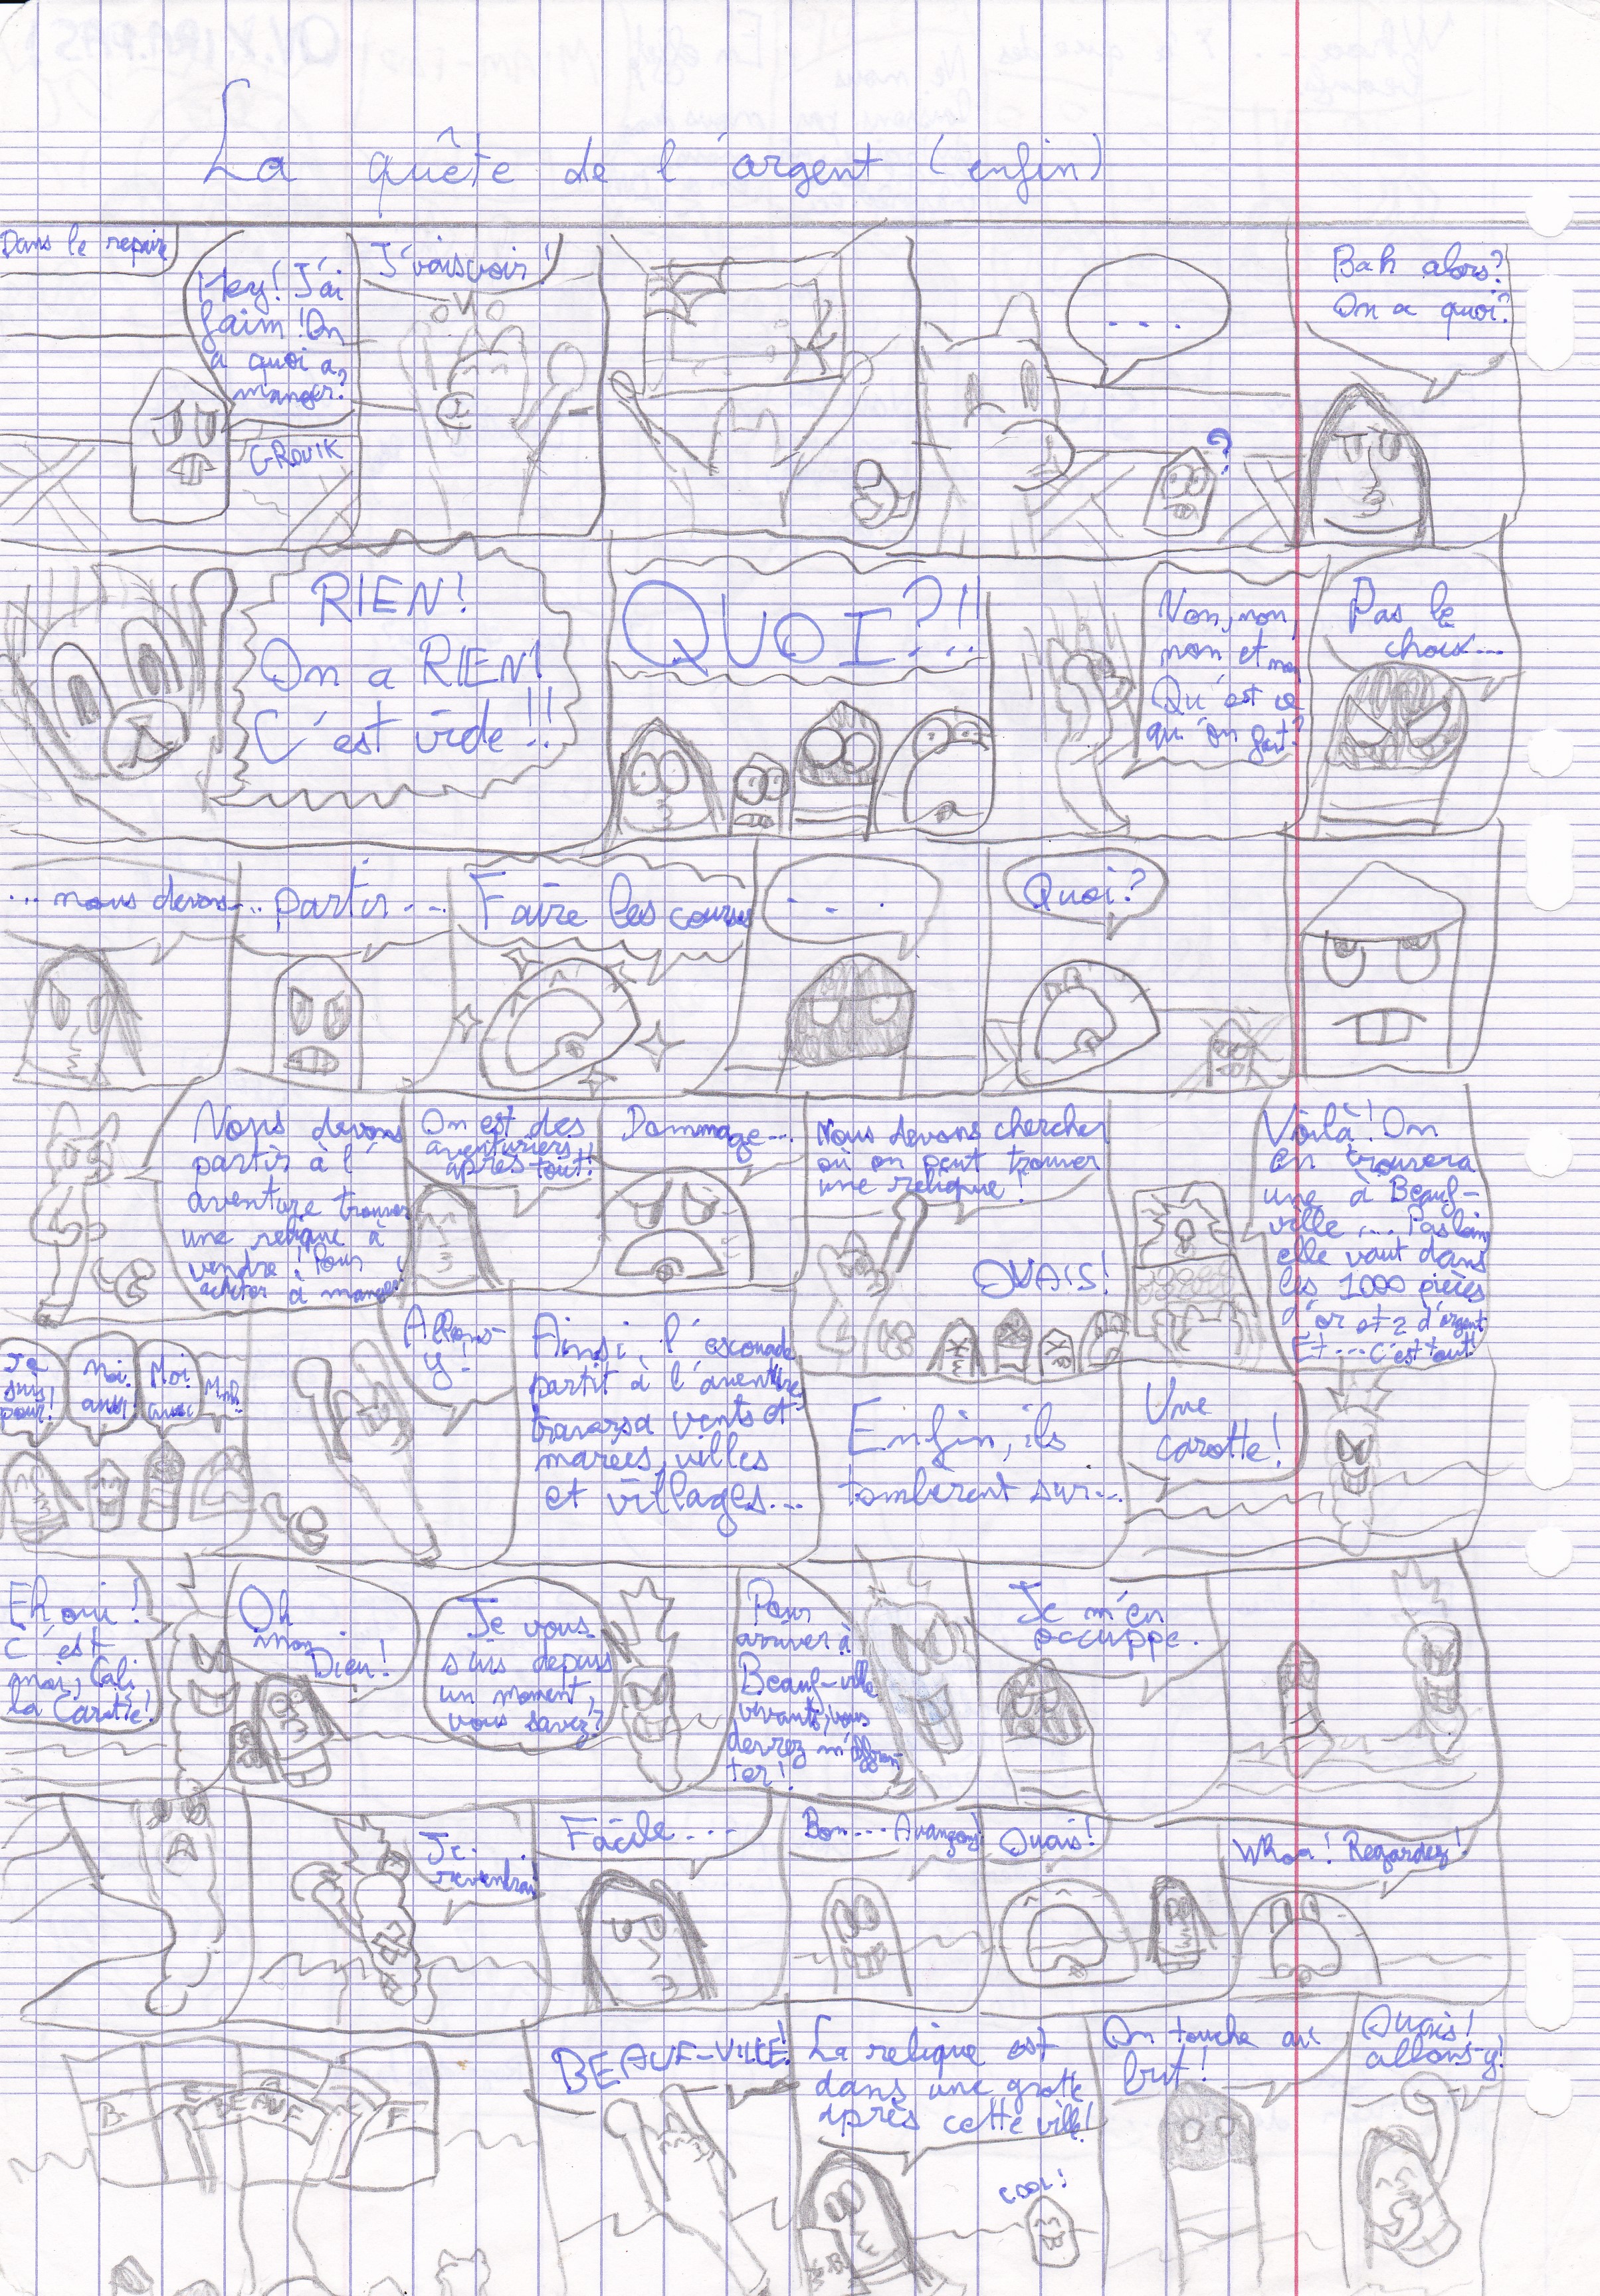 La quête de l'argent (enfin)
Dans le repaire
Hey! J'ai
faim! On
a quoi a
manger?
GROUIK
J'vais voir!
...
?
Bah alors?
On a quoi?
RIEN!
On a RIEN!
C'est vide!!
QUOI?!!
Non, non,
non et
Qu'est ce
qu'on fait?
Pas le
choix...
...nous devons...
partir...
Faire les courses
...
Quoi?
Nous devons
partir à l'
aventure trouver
une relique à
vendre! Pour
acheter à manger!
On est des
aventuriers,
après tout!
Dommage...
Nous devons chercher
où on peut trouver
une relique!
OUAIS!
Voilà! On
en trouvera
une à Beauf-
ville... Pas loin
elle vaut dans
les 1000 pièces
d'or et 2 d'argent
Et... c'est tout!
Je
suis
pour!
Moi
aussi
Moi
aussi
Allons-
y!
Ainsi, l'escouade
partit à l'aventure
traversa vents et
marées, villes
et villages...
Enfin, ils
tombèrent sur...
Une
carotte!
Eh oui!
C'est
moi, Cali
la Carotte!
Oh
mon
Dieu!
Je vous
suis depuis
un moment,
vous savez?
Pour
arriver à
Beauf-ville
vivants, vous
devrez m'affron-
ter!
Je m'en
occuppe.
Je
reviendrai!
Facile...
Bon... Avançons!
Ouais!
Whoa! Regardez!
B.
BEAUF
F
BEAUF-VILLE!
La relique est
dans une grotte
après cette ville!
cool!
On touche au
but!
Ouais!
allons-y!